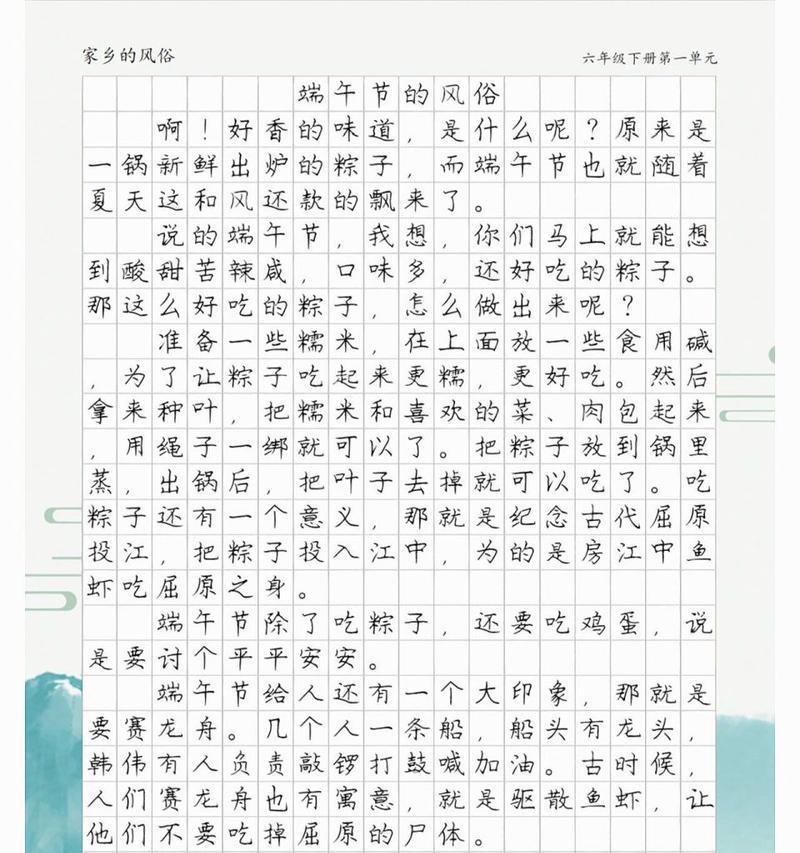 家乡的风俗
六年级下册第一单元
端午节的风俗
啊！好香的味道，是什么呢？原来是
一锅新鲜出炉的粽子，而端午节也就随着
夏天这和风还款的飘来了。
说的端午节，我想，你们马上就能想
到酸甜苦辣咸，口味多，还好吃的粽子。
那这么好吃的粽子，怎么做出来呢？
准备一些糯米，在上面放一些食用碱
，为了让粽子吃起来更糯，更好吃。然后
拿来种叶，把糯米和喜欢的菜、肉包起来
，用绳子一绑就可以了。把粽子放到锅里
蒸，出锅后，把叶子去掉就可以吃了。吃
粽子还有一个意义，那就是纪念古代屈原
投江，把粽子投入江中，为的是房江中鱼
虾吃屈原之身。
端午节除了吃粽子，还要吃鸡蛋，说
是要讨个平平安安。
端午节给人还有一个大印象，那就是
要赛龙舟。几个人一条船，船头有龙头，
韩伟有人负责敲锣打鼓喊加油。古时候，
人们赛龙舟也有寓意，就是驱散鱼虾，让
他们不要吃掉屈原的尸体。